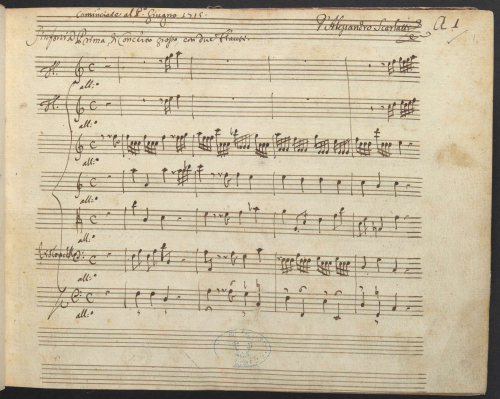 Cominciate al P.º Giugno 1715.
D'Alessandro Scarlatti
A 1
Sinfonia Prima di Concerto grosso con due Flauti.
fl.
all.º
fl.
all.º
all.º
all.º
all.º
Violoncello
all.º
all.º